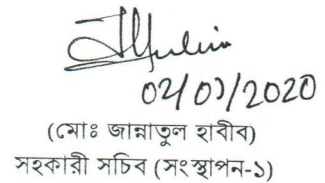 02/01/2020
(মোঃ জান্নাতুল হাবীব)
সহকারী সচিব (সংস্থাপন-১)